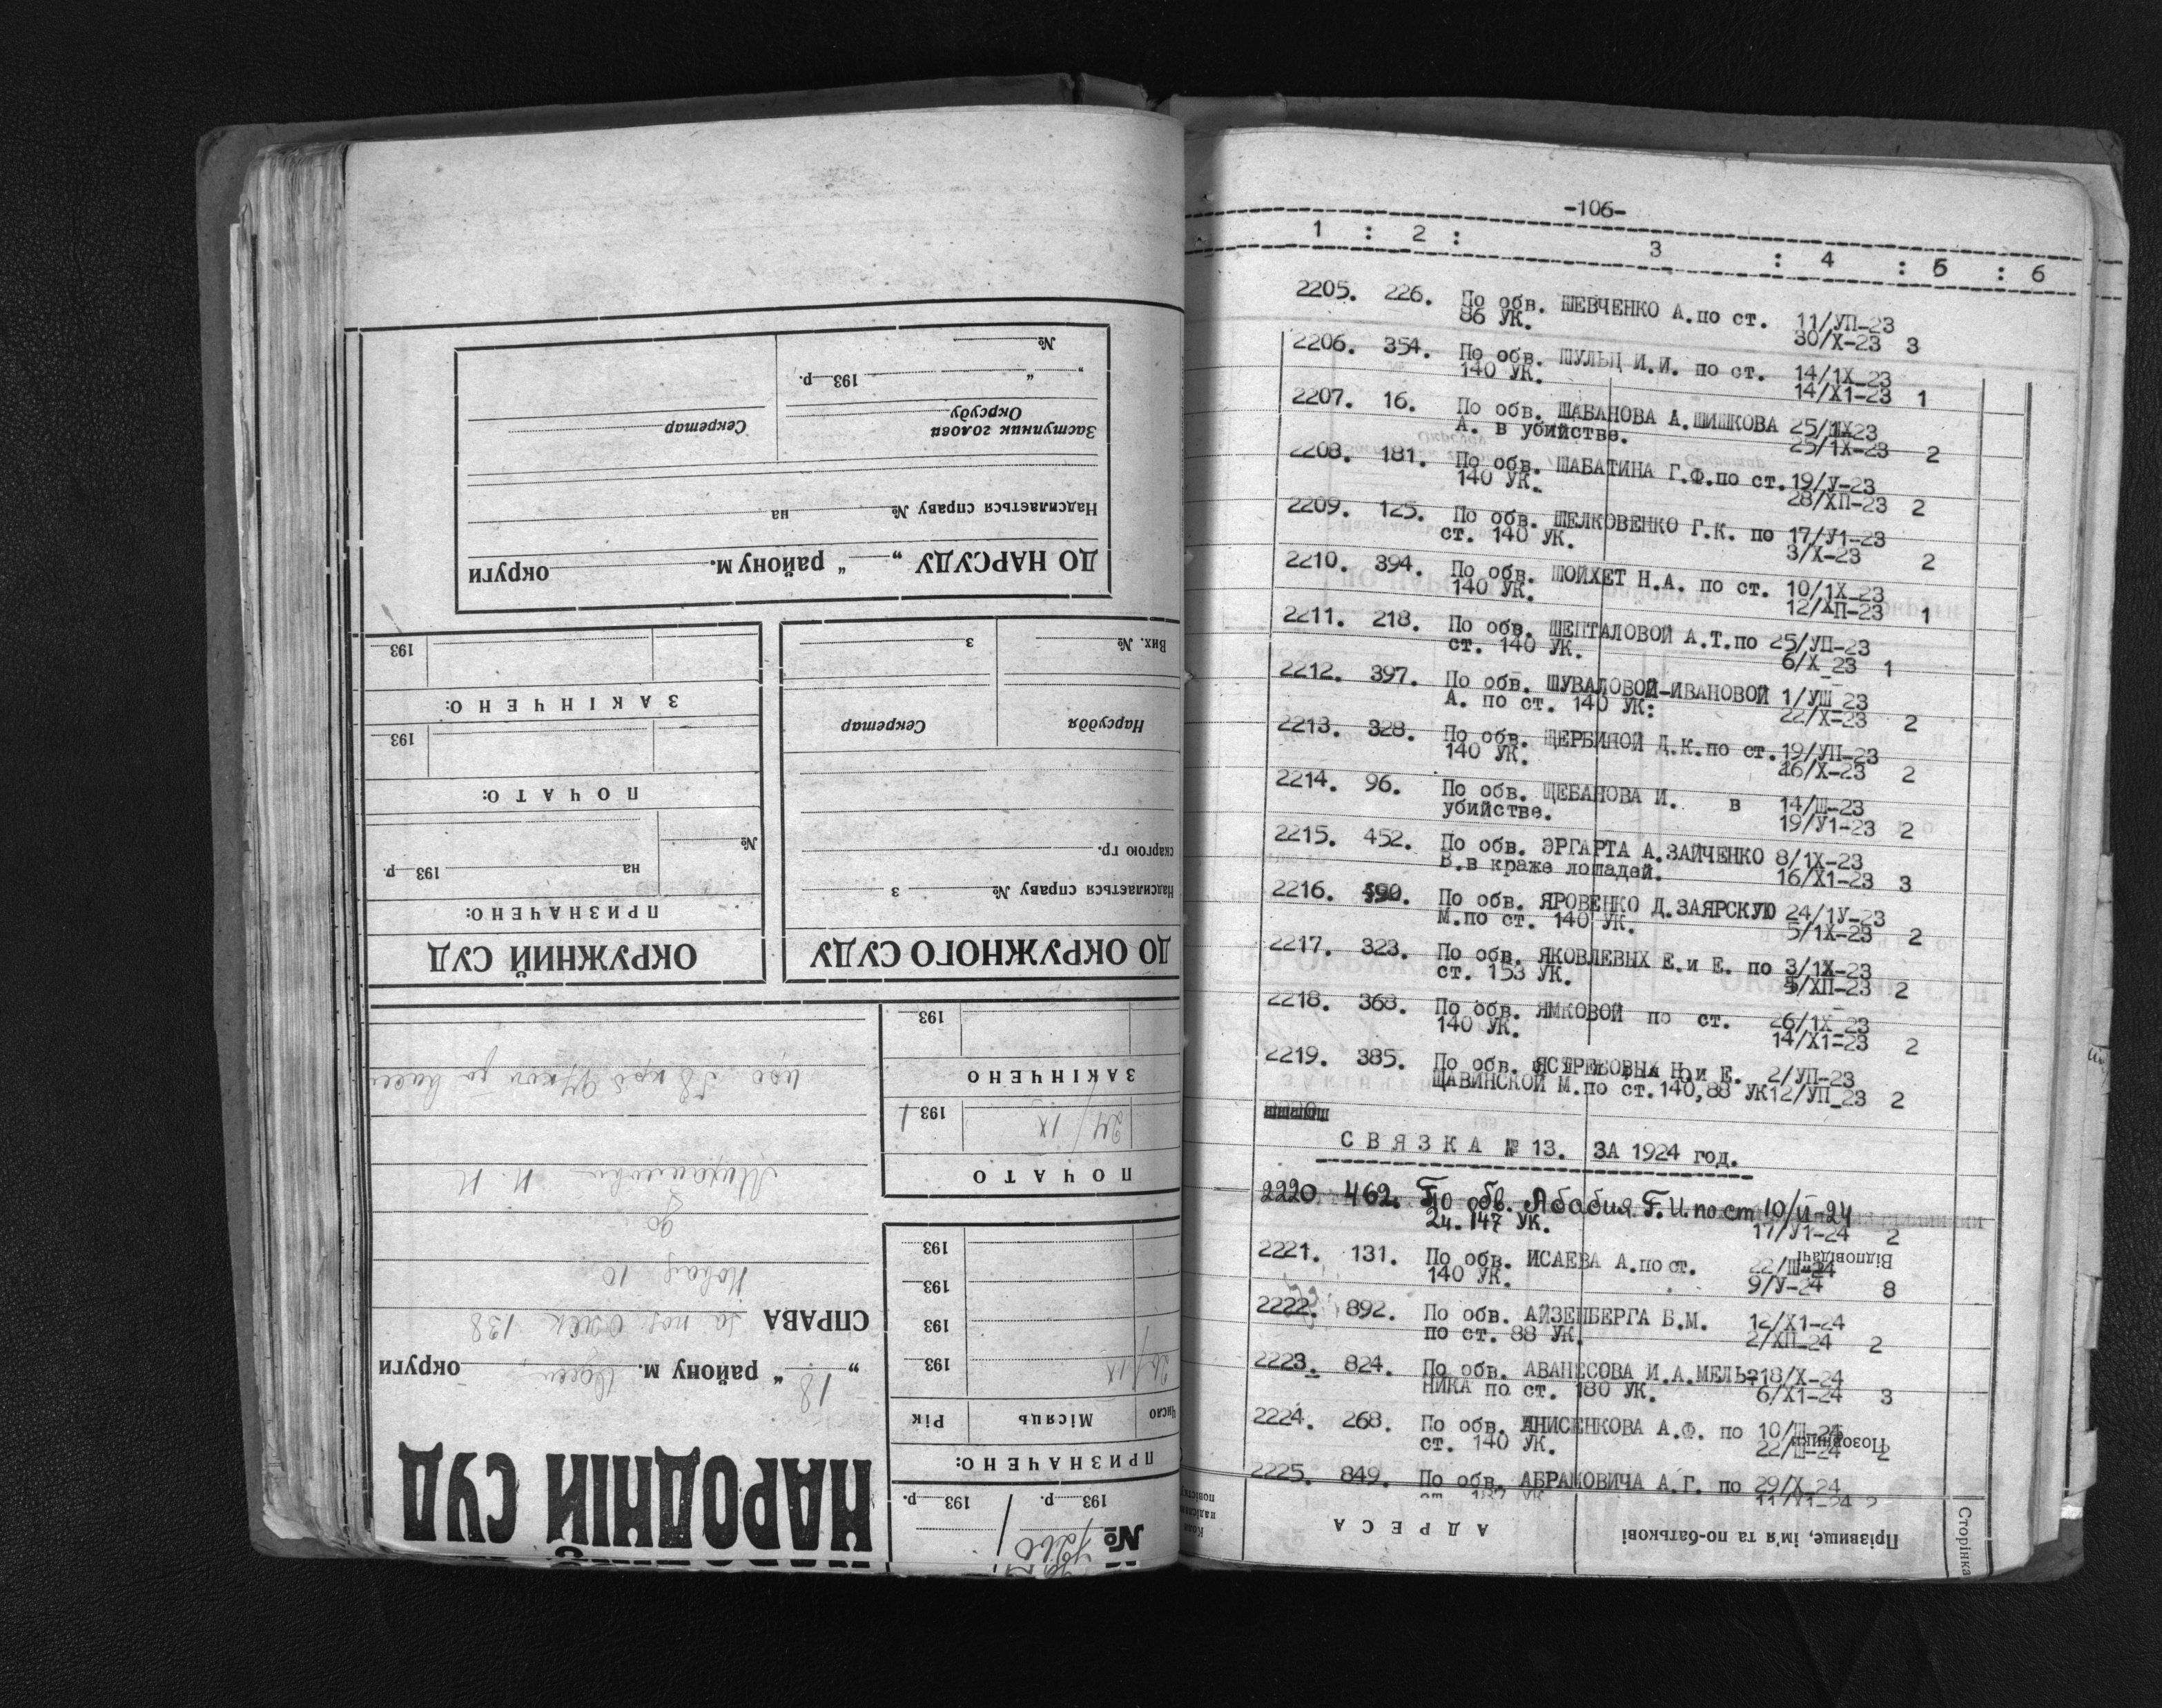 ДО НАРСУДУ „ “ району м. округи
Надсилається справу № на
Заступник голови
Окрсуду
Секретар
„ “ 193 р.
№
ДО ОКРУЖНОГО СУДУ
Надсилається справу № з
скаргою гр.
Нарсуддя
Секретар
Вих. № з
ОКРУЖНИЙ СУД
ПРИЗНАЧЕНО:
на 193 р.
№
ПОЧАТО:
193
ЗАКІНЧЕНО:
193
НАРОДНІЙ СУД
„ 18 “ району м. округи
СПРАВА
138
10
И. И
№ 193 р. 193 р.
ПРИЗНАЧЕНО:
Число Місяць Рік
26 IX 193
193
193
193
ПОЧАТО
24 IX 193 1
ЗАКІНЧЕНО
193
-106-
1 : 2 : 3 : 4 : 5 : 6
2205. 226. По обв. ШЕВЧЕНКО А.по ст. 11/УП-23
86 УК. 30/X-23 3
2206. 354. По обв. ШУЛЬЦ И.И. по ст. 14/1X-23
140 УК. 14/X1-23 1
2207. 16. По обв. ШАБАНОВА А.ШИШКОВА
А. в убийстве. 25/1X-23 2
2208. 181. По обв. ШАБАТИНА Г.Ф.по ст. 19/У-23
140 УК. 28/XП-23 2
2209. 125. По обв. ШЕЛКОВЕНКО Г.К. по 17/У1-23
ст. 140 УК. 3/X-23 2
2210. 394. По обв. ШОЙХЕТ Н.А. по ст. 10/1X-23
140 УК. 12/XП-23 1
2211. 218. По обв. ШЕПТАЛОВОЙ А.Т.по 25/УП-23
ст. 140 УК. 6/X-23 1
2212. 397. По обв. ШУВАЛОВОЙ-ИВАНОВОЙ 1/УШ-23
А. по ст. 140 УК: 22/X-23 2
2213. 328. По обв. ЩЕРБИНОЙ Д.К.по ст. 19/УП-23
140 УК. 16/X-23 2
2214. 96. По обв. ЩЕБАНОВА И. в 14/Ш-23
убийстве. 19/У1-23 2
2215. 452. По обв. ЭРГАРТА А.ЗАЙЧЕНКО 8/1X-23
В.в краже лошадей. 16/X1-23 3
2216. По обв. ЯРОВЕНКО Д.ЗАЯРСКУЮ 24/1У-23
М.по ст. 140 УК. 5/1X-23 2
2217. 323. По обв. ЯКОВЛЕВЫХ Е.и Е. по 3/1X-23
ст. 153 УК. 5/XП-23 2
2218. 368. По обв. ЯМКОВОЙ по ст. 26/1X-23
140 УК. 14/X1-23 2
2219. 385. По обв. ЯСТРЕБОВЫХ Н.и Е. 2/УП-23
ЩАВИНСКОЙ М.по ст.140,88 УК 12/УП-23 2
СВЯЗКА № 13. ЗА 1924 год.
2220 462. По обв. Абабия Г.И. по ст 10/II-24
24. 147 УК. 17/У1-24 2
2221. 131. По обв. ИСАЕВА А.по ст. 22/Ш-24
140 УК. 9/У-24 8
Відповідачі
2222. 892. По обв. АЙЗЕНБЕРГА Б.М. 12/X1-24
по ст. 88 УК. 2/XП-24 2
2223. 824. По обв. АВАНЕСОВА И.А.МЕЛЬ- 18/X-24
НИКА по ст. 180 УК. 6/X1-24 3
2224. 268. По обв. АНИСЕНКОВА А.Ф. по 10/Ш-24
ст. 140 УК. 22/Ш-24 2
2225. 849. По обв. АБРАМОВИЧА А.Г. по 29/X-24
11/X1-24 2
АДРЕСА
Прізвище, ім'я та по-батькові
Сторінка